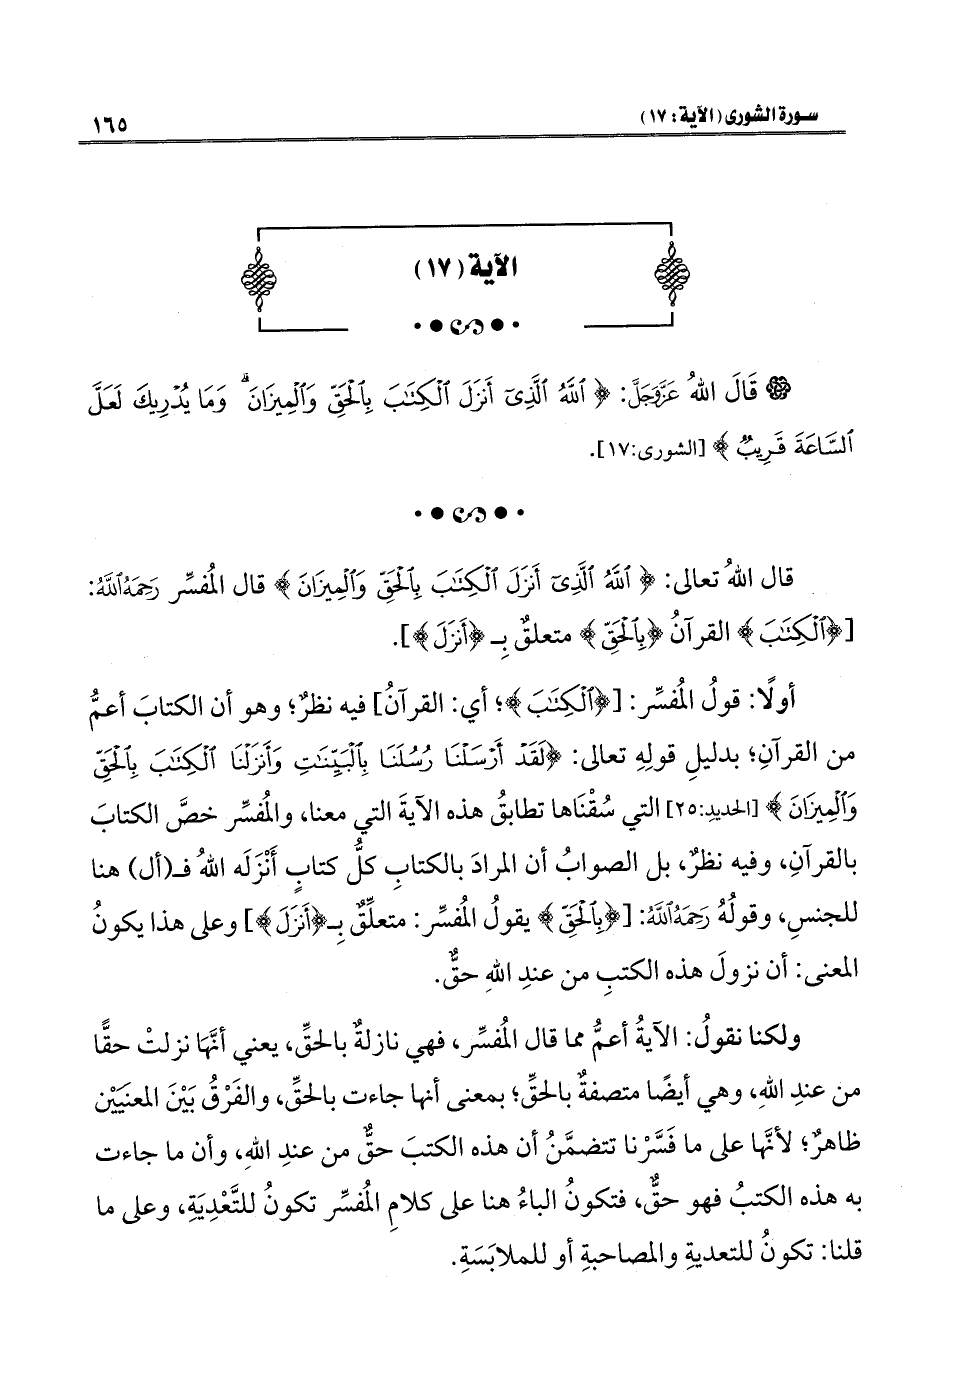 سورة الشورى (الآية: ١٧)
١٦٥
الآية (١٧)
قَالَ اللهُ عَزَّوَجَلَّ: ﴿ ٱللَّهُ ٱلَّذِىٓ أَنزَلَ ٱلْكِتَٰبَ بِٱلْحَقِّ وَٱلْمِيزَانَ ۗ وَمَا يُدْرِيكَ لَعَلَّ
ٱلسَّاعَةَ قَرِيبٌ ﴾ [الشورى:١٧].
قال اللهُ تعالى: ﴿ ٱللَّهُ ٱلَّذِىٓ أَنزَلَ ٱلْكِتَٰبَ بِٱلْحَقِّ وَٱلْمِيزَانَ ﴾ قال المُفسِّر رَحِمَهُ ٱللَّهُ:
[﴿ٱلْكِتَٰبَ ﴾ القرآنُ ﴿بِٱلْحَقِّ﴾ متعلقٌ بِـ ﴿أَنزَلَ ﴾].
أولًا: قولُ المُفسِّر: [﴿ٱلْكِتَٰبَ ﴾؛ أي: القرآنُ] فيه نظرٌ؛ وهو أن الكتابَ أعمُّ
من القرآنِ؛ بدليلِ قولِهِ تعالى: ﴿لَقَدْ أَرْسَلْنَا رُسُلَنَا بِٱلْبَيِّنَٰتِ وَأَنزَلْنَا ٱلْكِتَٰبَ بِٱلْحَقِّ
وَٱلْمِيزَانَ ﴾ [الحديد:٢٥] التي سُقْنَاها تطابقُ هذه الآيةَ التي معنا، والمُفسِّر خصَّ الكتابَ
بالقرآنِ، وفيه نظرٌ، بل الصوابُ أن المرادَ بالكتابِ كلُّ كتابٍ أَنْزَلَه اللهُ فـ(أل) هنا
للجنسِ، وقولُهُ رَحِمَهُ ٱللَّهُ: [﴿بِٱلْحَقِّ ﴾ يقولُ المُفسِّر: متعلِّقٌ بِـ﴿أَنزَلَ ﴾] وعلى هذا يكونُ
المعنى: أن نزولَ هذه الكتبِ من عندِ اللهِ حقٌّ.
ولكنا نقولُ: الآيةُ أعمُّ مما قال المُفسِّر، فهي نازلةٌ بالحقِّ، يعني أنَّهَا نزلتْ حقًّا
من عندِ اللهِ، وهي أيضًا متصفةٌ بالحقِّ؛ بمعنى أنها جاءت بالحقِّ، والفَرْقُ بَيْنَ المعنَيَيْنِ
ظاهرٌ؛ لأنَّها على ما فَسَّرْنا تتضمَّنُ أن هذه الكتبَ حقٌّ من عندِ اللهِ، وأن ما جاءت
به هذه الكتبُ فهو حقٌّ، فتكونُ الباءُ هنا على كلامِ المُفسِّر تكونُ للتَّعْدِيَةِ، وعلى ما
قلنا: تكونُ للتعديةِ والمصاحبةِ أو للملابَسَةِ.